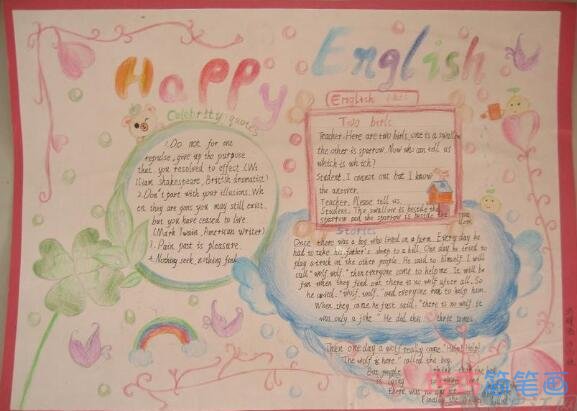 Happy English
Celebrity quotes
1. Do not for one
repulse, give up the purpose
that you resolved to effect (Wi
lliam Shakespeare, British dramatist)
2. Don't part with your illusions. Wh
en they are gone you may still exist.
but you have ceased to live.
(Mark Twain, American writer)
3. Pain past is pleasure.
4. Nothing seek, nothing find.
English
Two birds
Teacher: Here are two birds, one is a swallow
the other is sparrow. Now who can tell us
which is which?
Student: I cannot out but I know
the answer.
Teacher: Please tell us.
Student: The swallow is beside the
sparrow and the sparrow is beside the
Stories
Once there was a boy who lived on a farm. Every day he
had to take his father's sheep to a hill. One day he tried to
play a trick on the other people. He said to himself. I will
call "wolf wolf." then everyone come to help me. It will be
fun when they find out there is no wolf after all. So
he cried. "Wolf, wolf." and everyone ran to help him.
When they came he just said, "there is no wolf it
was only a joke." He did this three times.
Then one day a wolf really came. "Help! Help!
The wolf is here" called the boy.
But people think that he
is lying time
there was no
简笔画